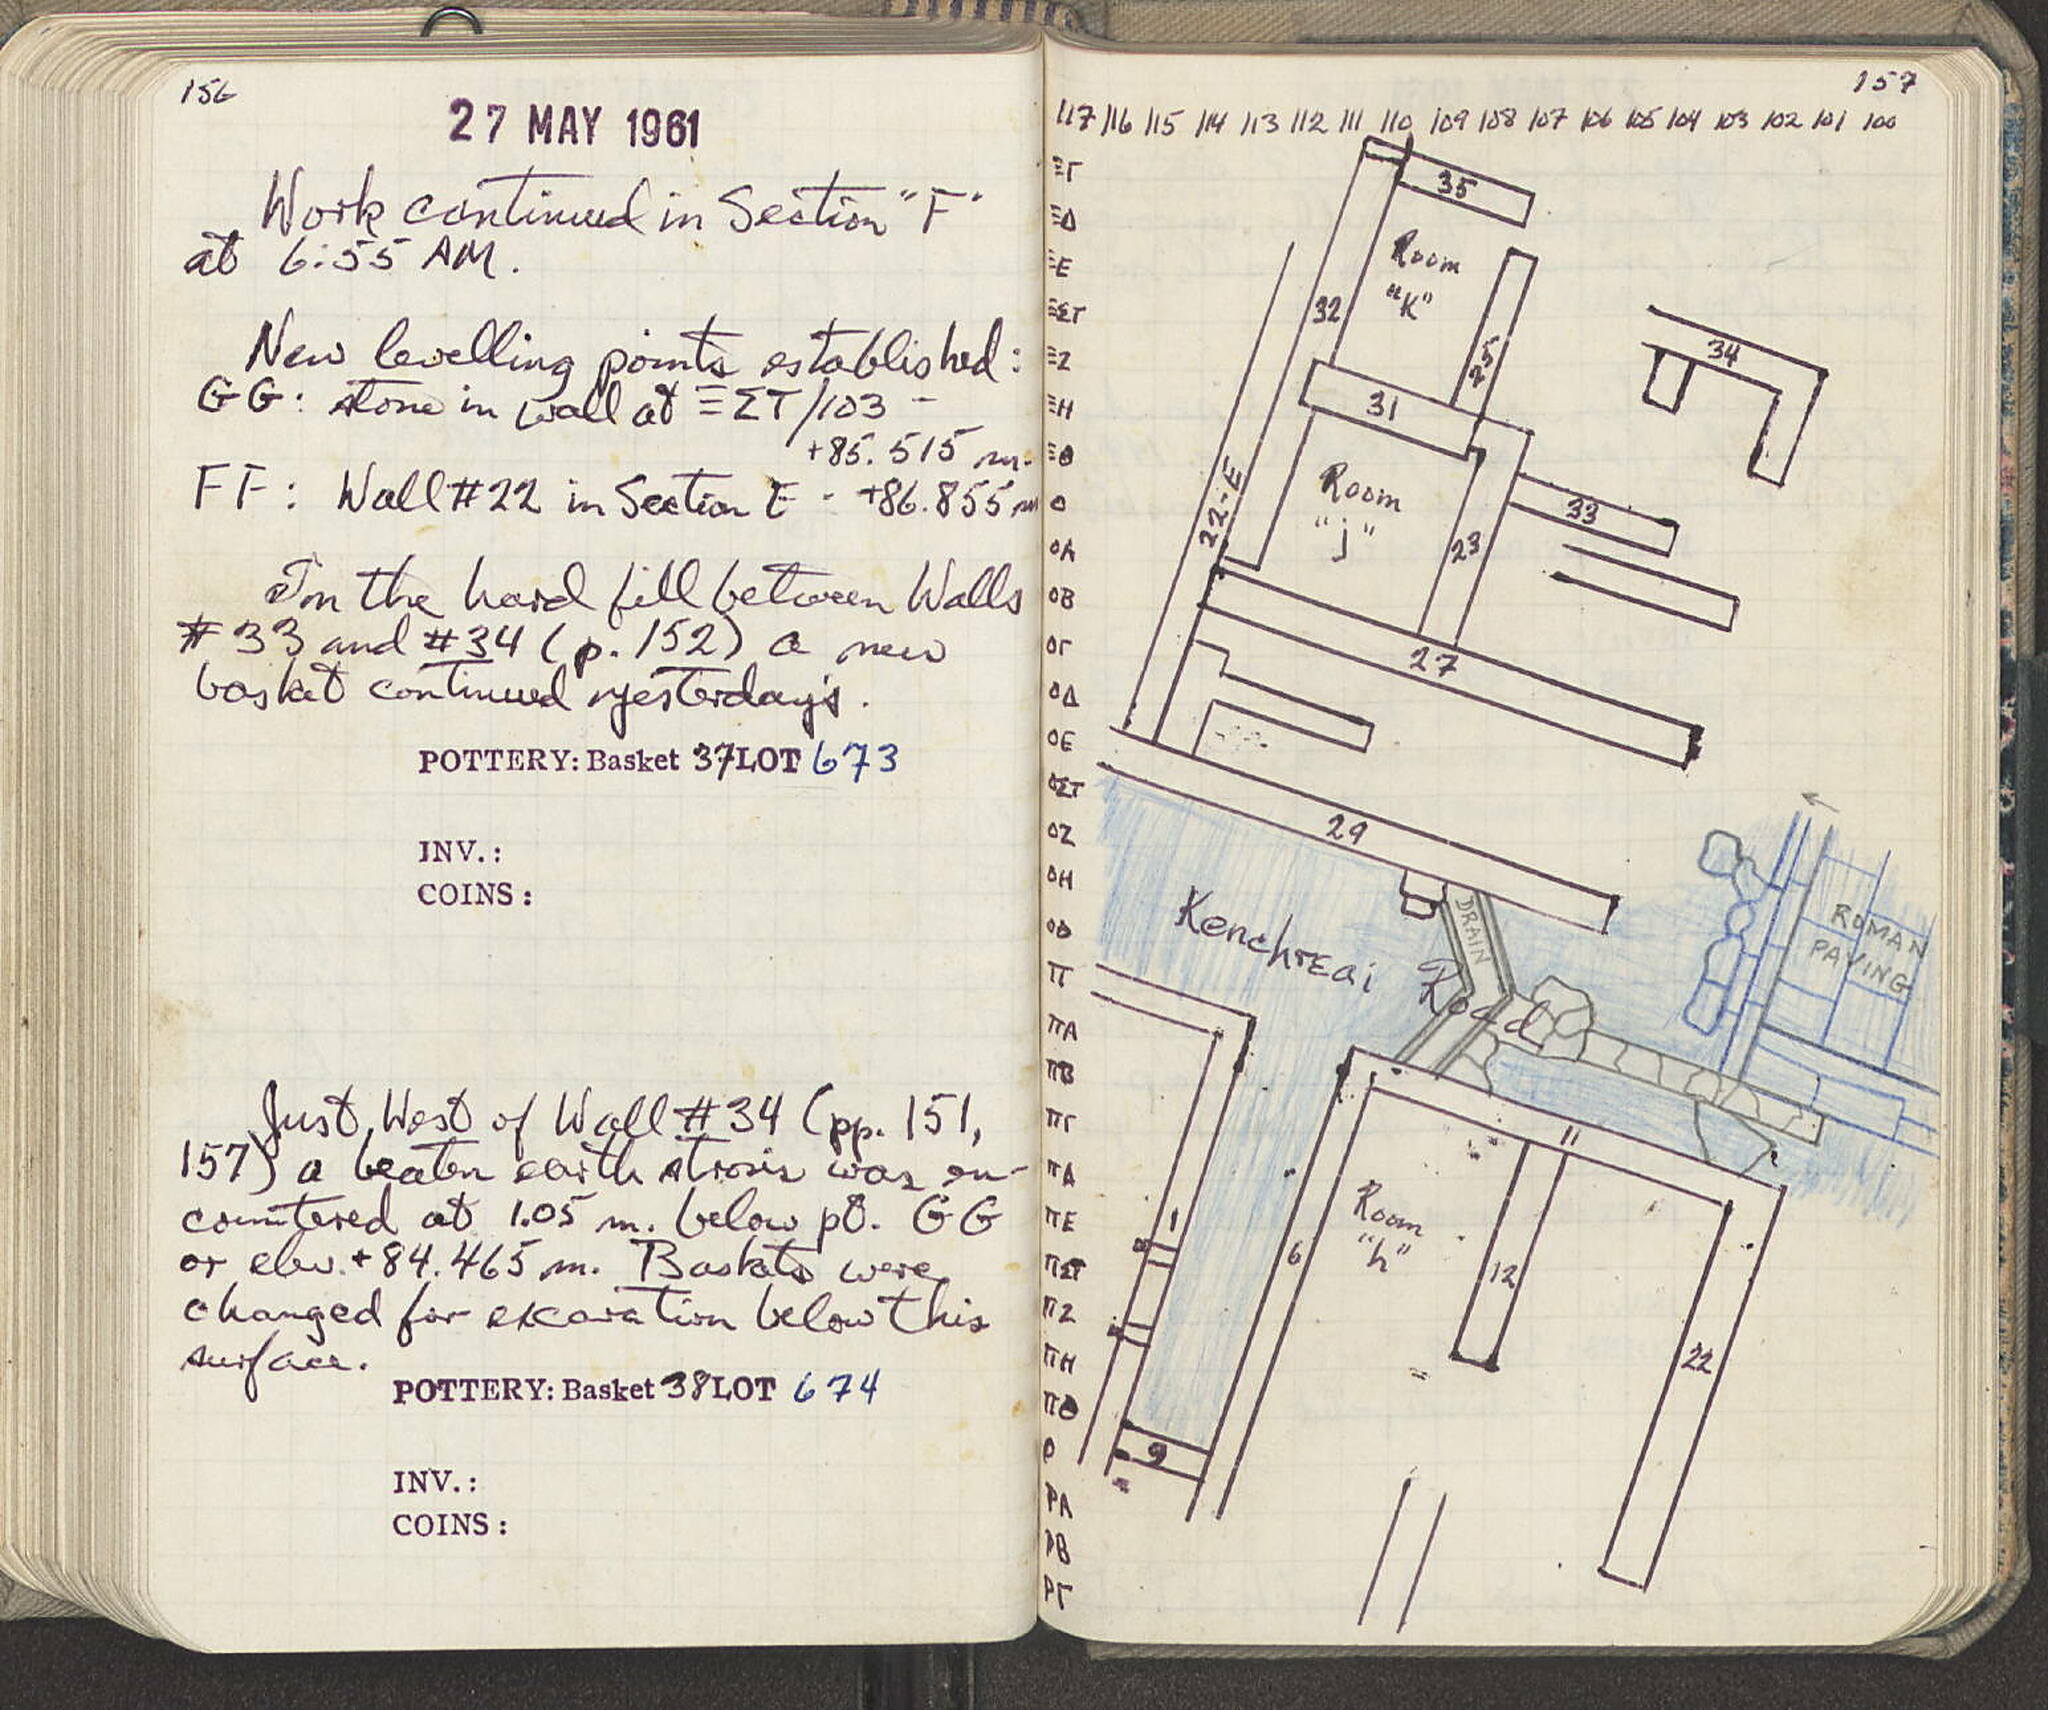 156
27 MAY 1961
Work continued in Section "F"
at 6:55 AM.
New levelling points established:
GG: stone in wall at ΞΣΤ/103 -
+85.515 m.
FF: Wall #22 in Section E - +86.855 m
In the hard fill between Walls
#33 and #34 (p. 152) a new
basket continued yesterday's.
POTTERY: Basket 37 LOT 673
INV.:
COINS:
Just West of Wall #34 (pp. 151,
157) a beaten earth strosis was en-
countered at 1.05 m. below pt. GG
or elev. +84.465 m. Baskets were
changed for excavation below this
surface.
POTTERY: Basket 38 LOT 674
INV.:
COINS:
157
117 116 115 114 113 112 111 110 109 108 107 106 105 104 103 102 101 100
ΞΓ
ΞΔ
ΞΕ
ΞΣΤ
ΞΖ
ΞΗ
ΞΘ
Ο
ΟΑ
ΟΒ
ΟΓ
ΟΔ
ΟΕ
ΟΣΤ
ΟΖ
ΟΗ
ΟΘ
Π
ΠΑ
ΠΒ
ΠΓ
ΠΔ
ΠΕ
ΠΣΤ
ΠΖ
ΠΗ
ΠΘ
Ρ
ΡΑ
ΡΒ
ΡΓ
35
Room
"K"
32
25
34
31
22-E
Room
"j"
23
33
27
29
DRAIN
Kenchreai Road
ROMAN
PAVING
11
1
Room
"h"
6
12
22
9